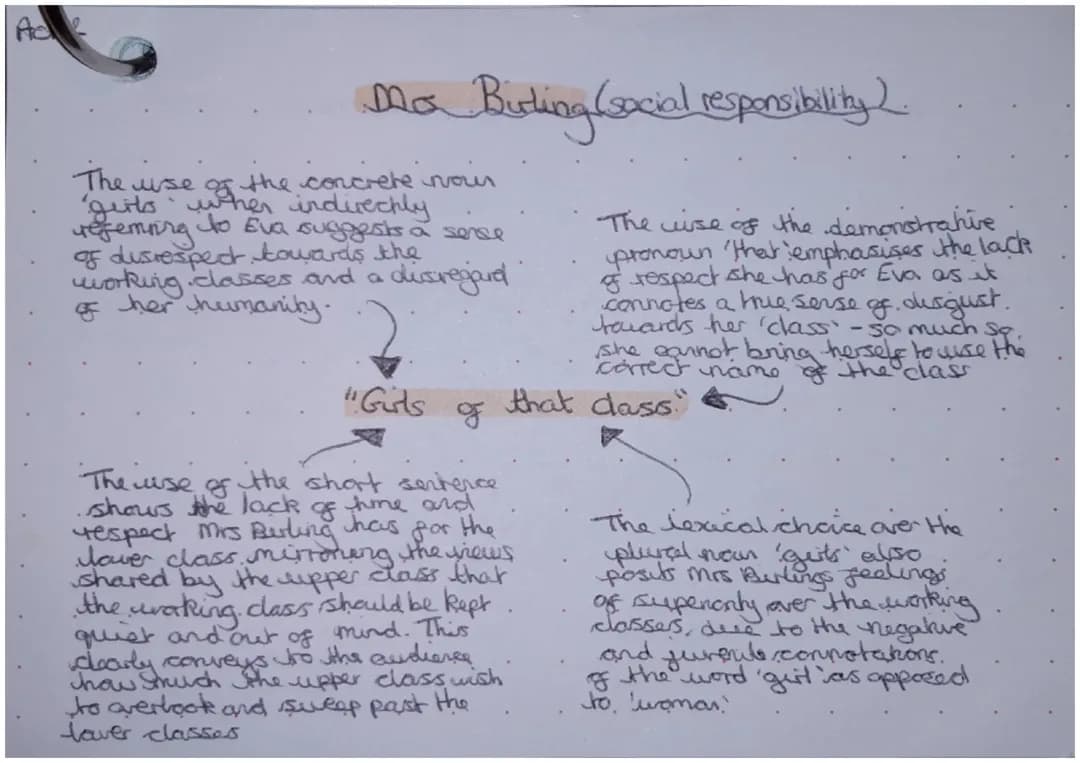 Act 2
Mrs Birling (social responsibility).
The use of the concrete noun
'girls' when indirectly
referring to Eva suggests a sense
of disrespect towards the
working classes and a disregard
of her humanity.
The use of the demonstrative
pronoun 'that' emphasises the lack
of respect she has for Eva as it
connotes a true sense of disgust
towards her 'class' - so much so
she cannot bring herself to use the
correct name of the class
"Girls of that class."
The use of the short sentence
shows the lack of time and
respect Mrs Birling has for the
lower class mirroring the views
shared by the upper class that
the working class should be kept
quiet and out of mind. This
clearly conveys to the audience
how much the upper class wish
to overlook and sweep past the
lower classes
The lexical choice over the
plural noun 'girls' also
posits Mrs Birlings feelings
of superiority over the working
classes, due to the negative
and juvenile connotations
of the word 'girl' as opposed
to 'woman'